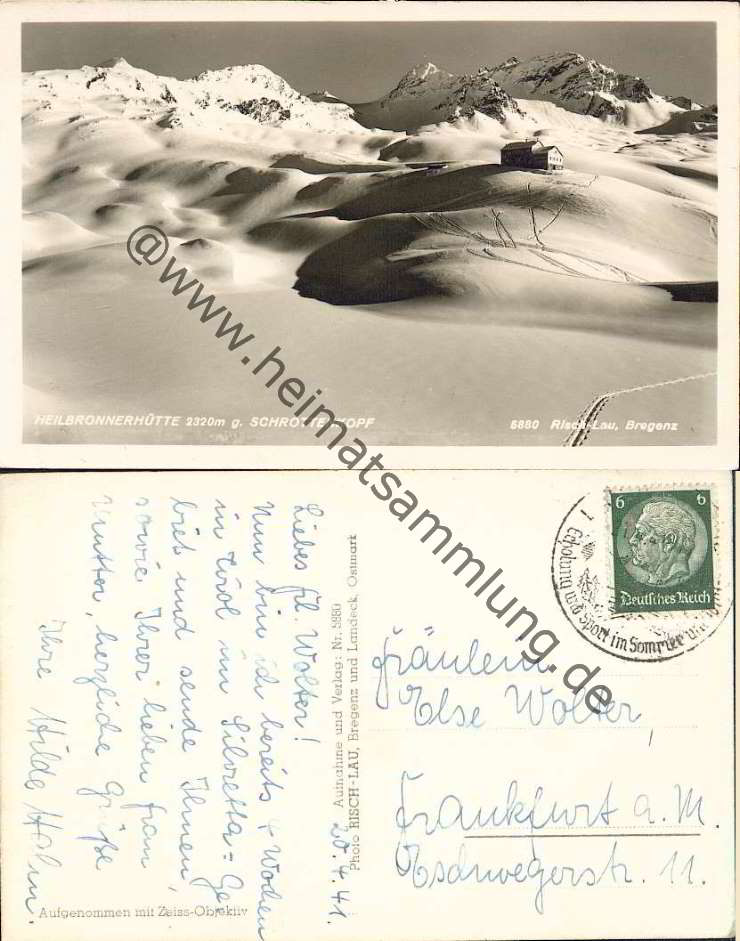 HEILBRONNERHÜTTE 2320m g. SCHROTTENKOPF
6880 Risch-Lau, Bregenz
@www.heimatsammlung.de
20.4.41.
Liebes Frl. Wolter!
Nun bin ich bereits 4 Wochen
in Tirol im Silvretta-Ge
biet und sende Ihnen,
sowie Ihrer lieben Frau
Mutter, herzliche Grüße
Ihre Hilde Hohm.
Aufgenommen mit Zeiss-Objektiv
Aufnahme und Verlag: Nr. 5880
Photo RISCH-LAU, Bregenz und Landeck, Ostmark
6 6
Deutsches Reich
Erholung und Sport im Sommer und
Fräulein
Else Wolter,
Frankfurt a. M.
Eschwegerstr. 11.